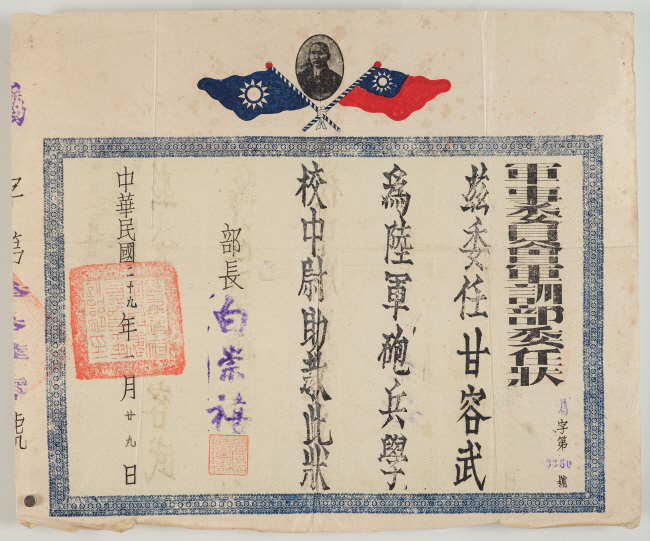 軍事委員會軍訓部委任狀
字第3350號
茲委任甘容武
為陸軍砲兵學
校中尉助教此狀
部長 白崇禧
中華民國二十九年一月廿九日
字第
號